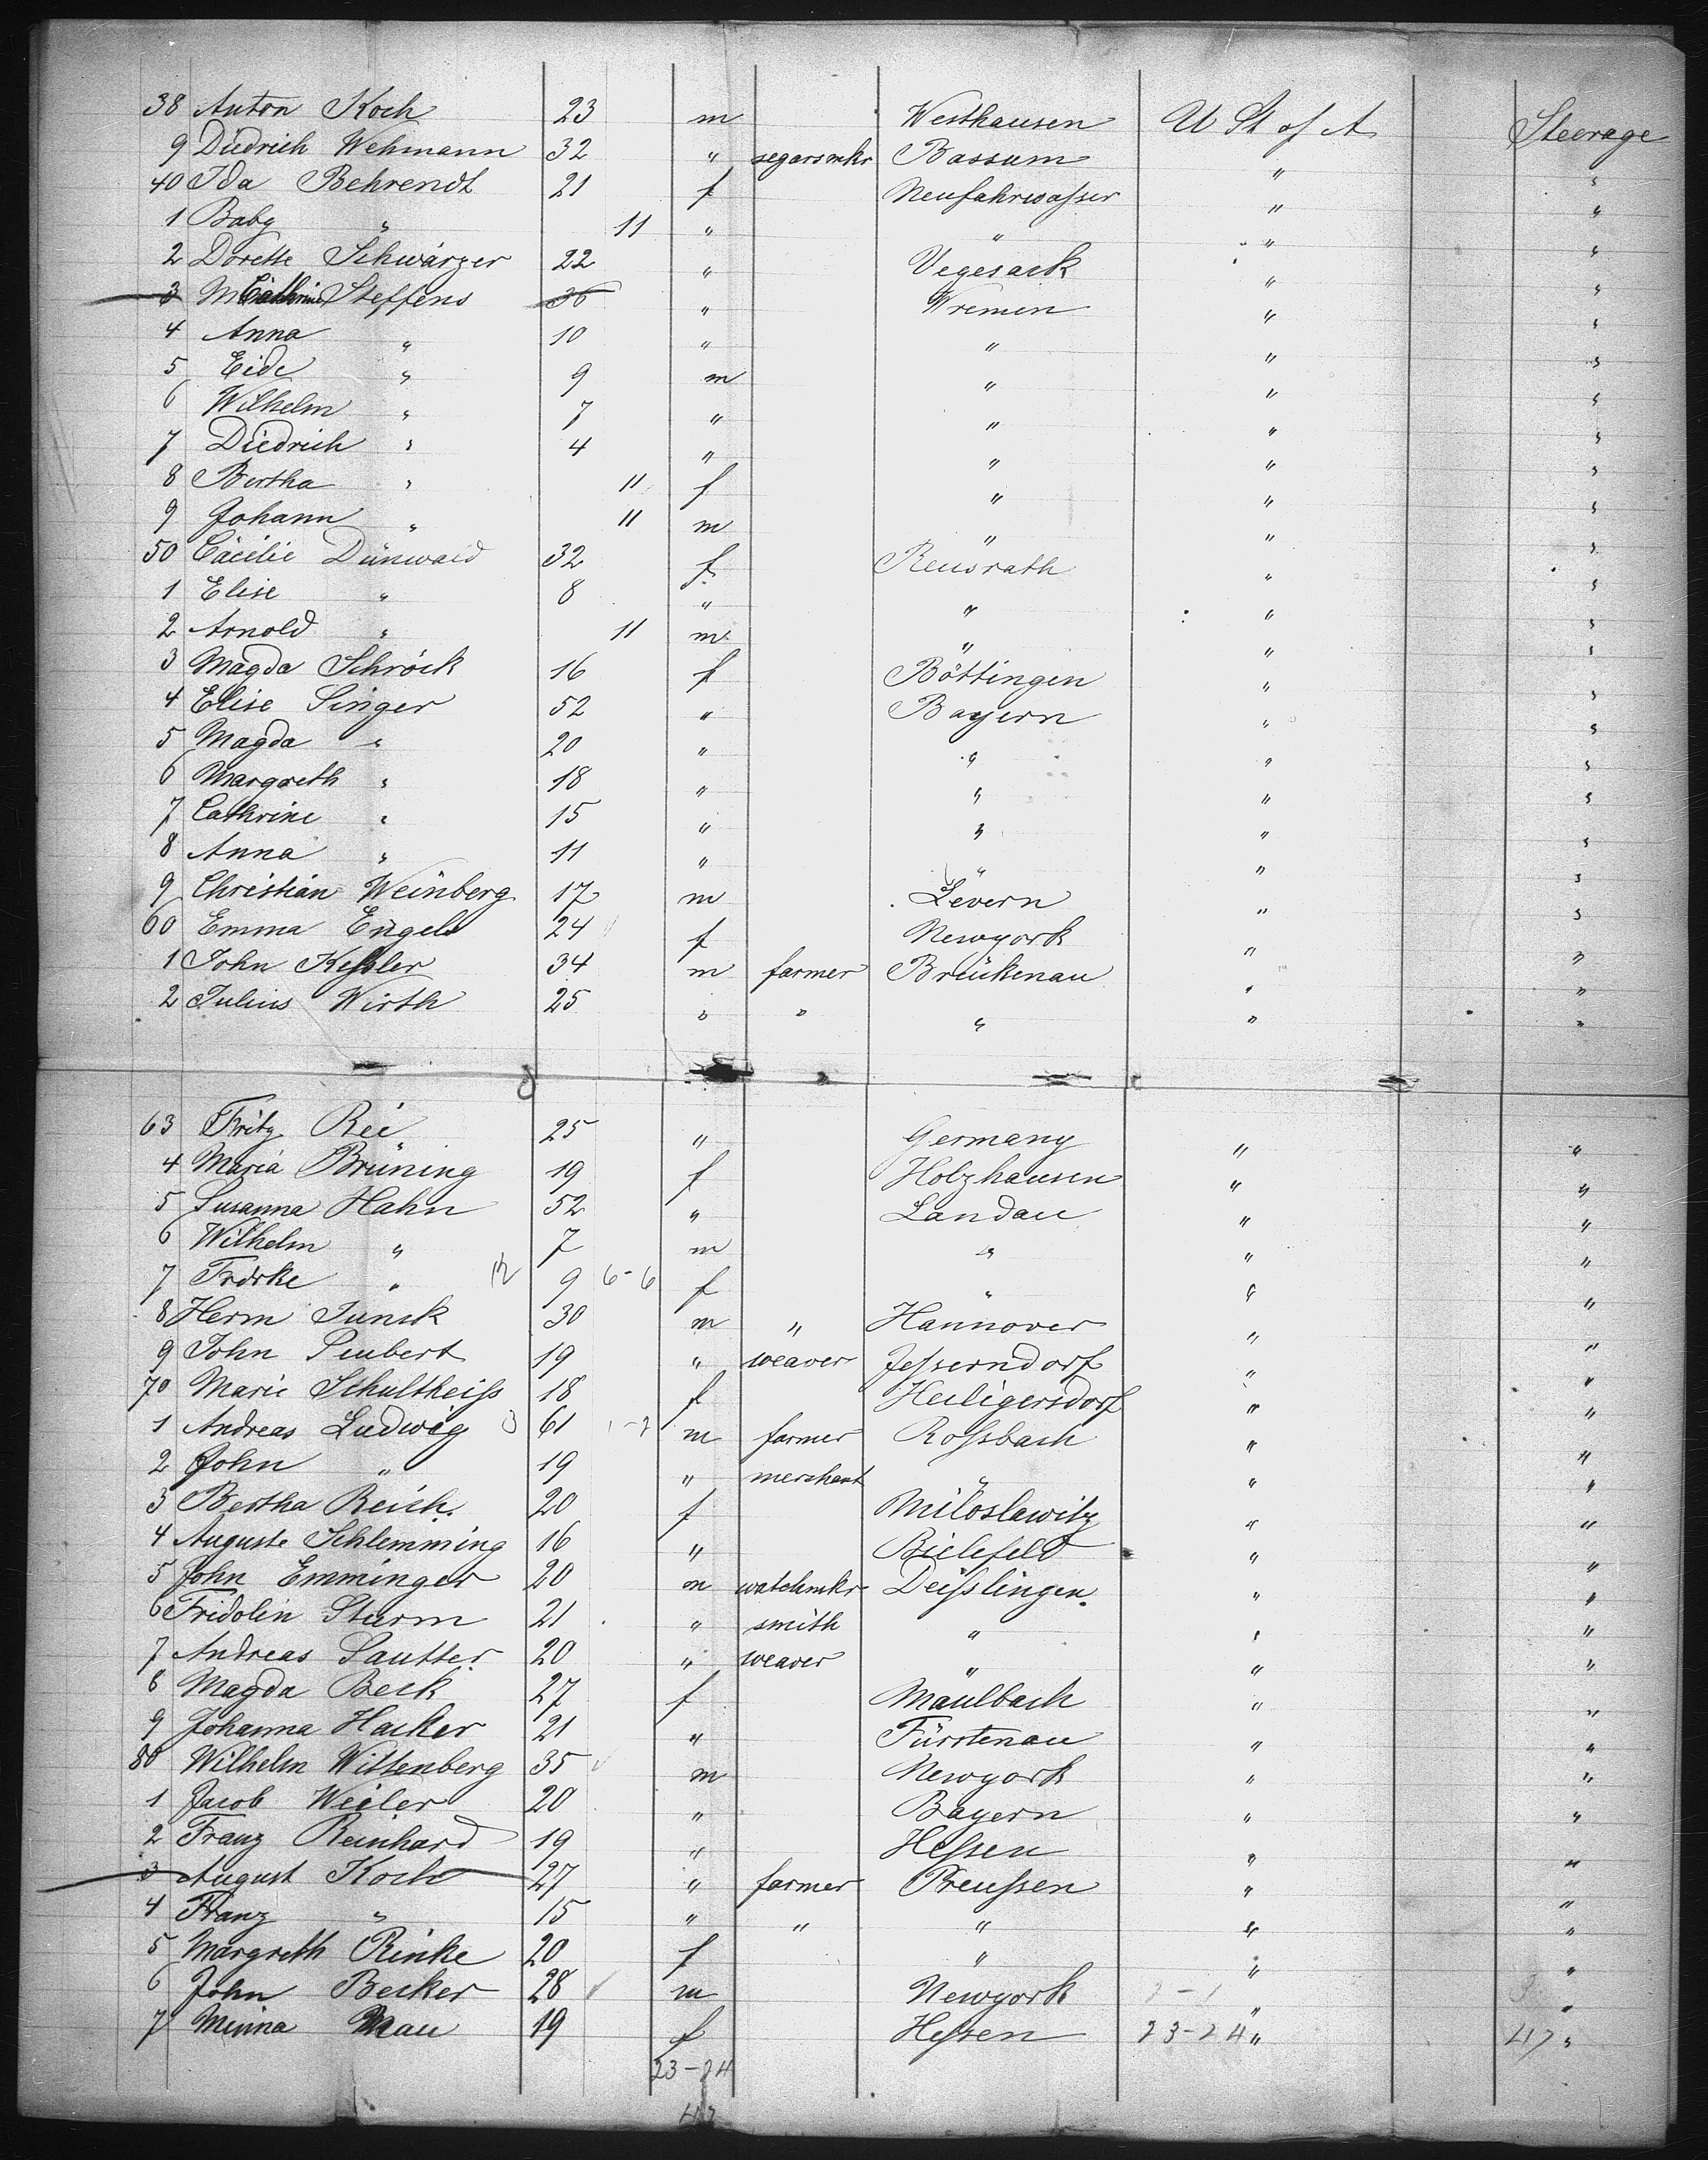 38 Anton Koch 23 m Westhausen U St of A Steerage
9 Diedrich Wehmann 32 " segarsmkr Bassum " "
40 Ida Behrendt 21 f Neufahrwasser " "
1 Baby " 11 " " " "
2 Dorette Schwärzer 22 " Vegesack " "
3 Cathrine Steffens 36 " Wremen " "
4 Anna " 10 " " " "
5 Eide " 9 m " " "
6 Wilhelm " 7 " " " "
7 Diedrich " 4 " " " "
8 Bertha " 11 f " " "
9 Johann " 11 m " " "
50 Cäcilie Dünwald 32 f Reusrath " "
1 Elise " 8 " " " "
2 Arnold " 11 m " " "
3 Magda Schröck 16 f Böttingen " "
4 Elise Singer 52 " Bayern " "
5 Magda " 20 " " " "
6 Margreth " 18 " " " "
7 Cathrine " 15 " " " "
8 Anna " 11 " " " "
9 Christian Weinberg 17 m Levern " "
60 Emma Engels 24 f Newyork " "
1 John Keßler 34 m farmer Brückenau " "
2 Julius Wirth 25 " " " " "
63 Fritz Rei 25 " Germany " "
4 Maria Brüning 19 f Holzhausen " "
5 Susanna Hahn 52 " Landau " "
6 Wilhelm " 7 m " " "
7 Fridrke " 12 9 6-6 f " " "
8 Herm Junck 30 m " Hannover " "
9 John Seubert 19 " weaver Jeßerndorf " "
70 Marie Schultheiß 18 f Heiligersdorf " "
1 Andreas Ludwig 3 61 1-2 m farmer Roßbach " "
2 John " 19 " merchant " " "
3 Bertha Reich. 20 f Miloslawitz " "
4 Auguste Schlemming 16 " Bielefeld " "
5 John Emminger 20 m watchmkr Deißlingen. " "
6 Fridolin Sturm 21 " smith " " "
7 Andreas Sautter 20 " weaver " " "
8 Magda Beck 27 f Maulbach " "
9 Johanna Hacker 21 " Fürstenau " "
80 Wilhelm Wittenberg 35 m Newyork " "
1 Jacob Weiler 20 " Bayern " "
2 Franz Reinhard 19 " Heßen " "
3 August Koch 27 " farmer Preußen " "
4 Franz " 15 " " " " "
5 Margreth Rinke 20 f " " "
6 John Becker 28 m Newyork " "
7 Minna Mau 19 f Heßen 23-24 " 47 "
23-24
47